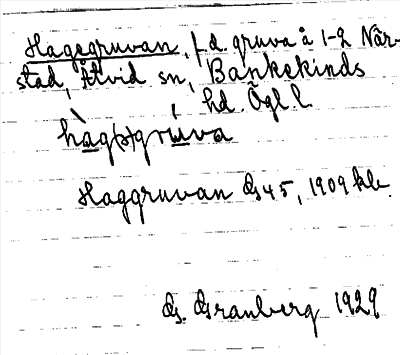 Hagegruvan, f.d. gruva å 1-2 När-
stad, Åtvid sn, Bankekinds
hd. Ögl l.
hàg(ə)grúva
Haggruvan GS 45, 1909 kle.
G. Granberg 1929